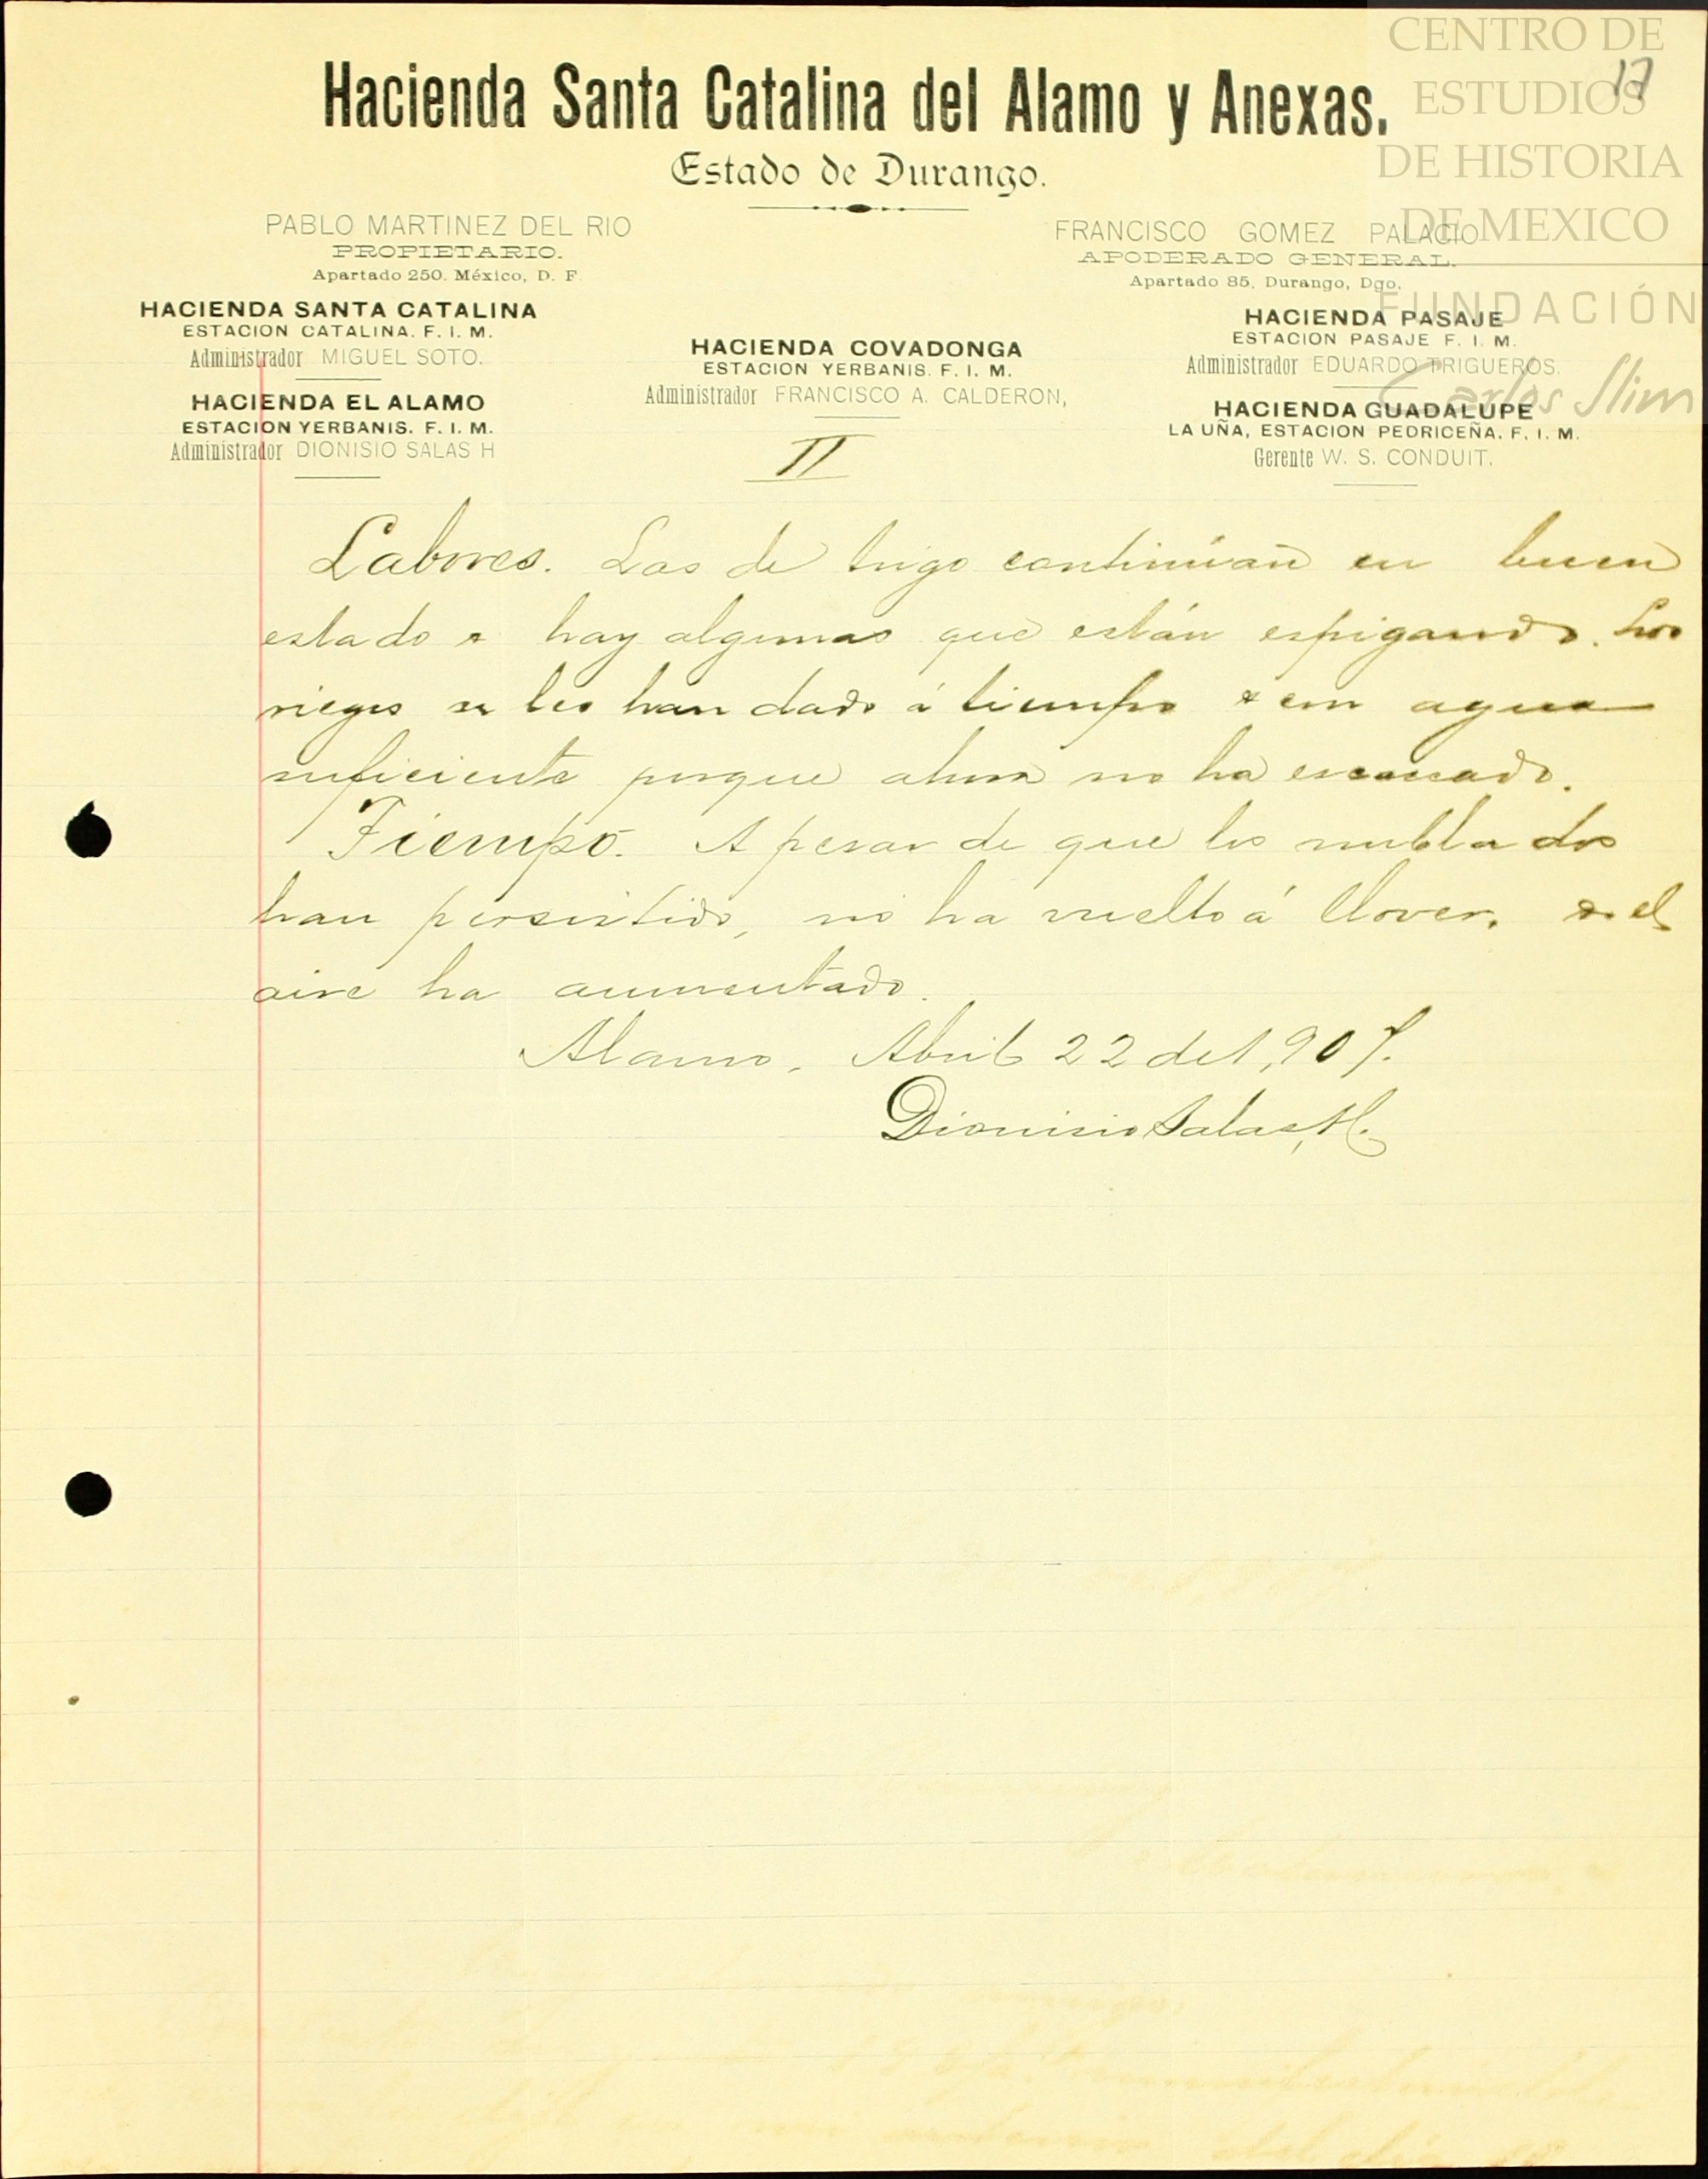 CENTRO DE
ESTUDIOS
DE HISTORIA
DE MEXICO
FUNDACIÓN
Carlos Slim
17
Hacienda Santa Catalina del Alamo y Anexas.
Estado de Durango.
PABLO MARTINEZ DEL RIO
PROPIETARIO.
Apartado 250. México, D. F.
FRANCISCO GOMEZ PALACIO
APODERADO GENERAL.
Apartado 85, Durango, Dgo.
HACIENDA SANTA CATALINA
ESTACION CATALINA. F. I. M.
Administrador MIGUEL SOTO.
HACIENDA EL ALAMO
ESTACION YERBANIS. F. I. M.
Administrador DIONISIO SALAS H
HACIENDA COVADONGA
ESTACION YERBANIS. F. I. M.
Administrador FRANCISCO A. CALDERON,
HACIENDA PASAJE
ESTACION PASAJE F. I. M.
Administrador EDUARDO TRIGUEROS.
HACIENDA GUADALUPE
LA UÑA, ESTACION PEDRICEÑA. F. I. M.
Gerente W. S. CONDUIT.
II
Labores. Las de trigo continúan en buen
estado & hay algunas que están espigando. Los
riegos se les han dado á tiempo & con agua
suficiente porque ahora no ha escaseado.
Tiempo. A pesar de que los nublados
han persistido, no ha vuelto á llover. & el
aire ha aumentado.
Alamo, Abril 22 de 1,907.
Dionisio Salas, H.